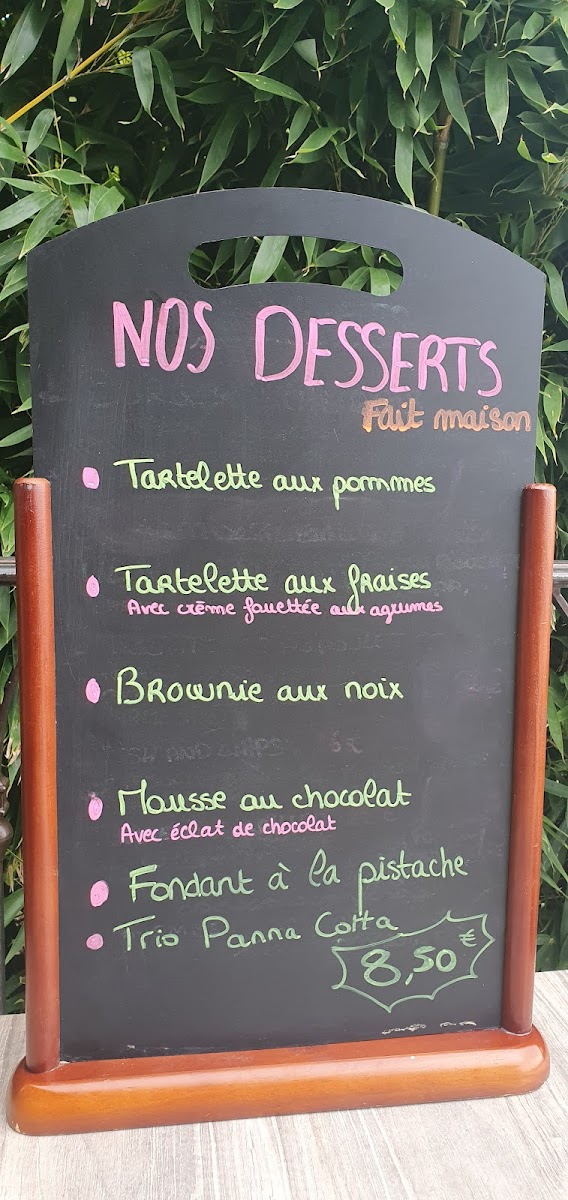 NOS DESSERTS
Fait maison
Tartelette aux pommes
Tartelette aux fraises
Avec crème fouettée aux agrumes
Brownie aux noix
Mousse au chocolat
Avec éclat de chocolat
Fondant à la pistache
Trio Panna Cotta
8,50 €